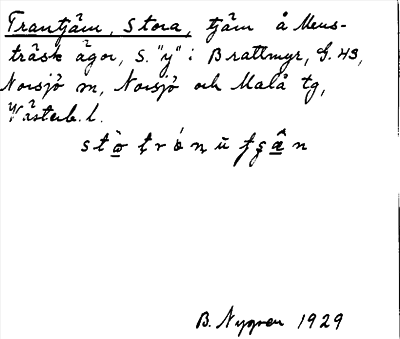 Trantjärn, Stora, tjärn å Mens-
träsk ägor, S. "y" i Brattmyr, G. 43,
Norsjö m, Norsjö och Malå tg,
Västerb. l.
B. Nygren 1929